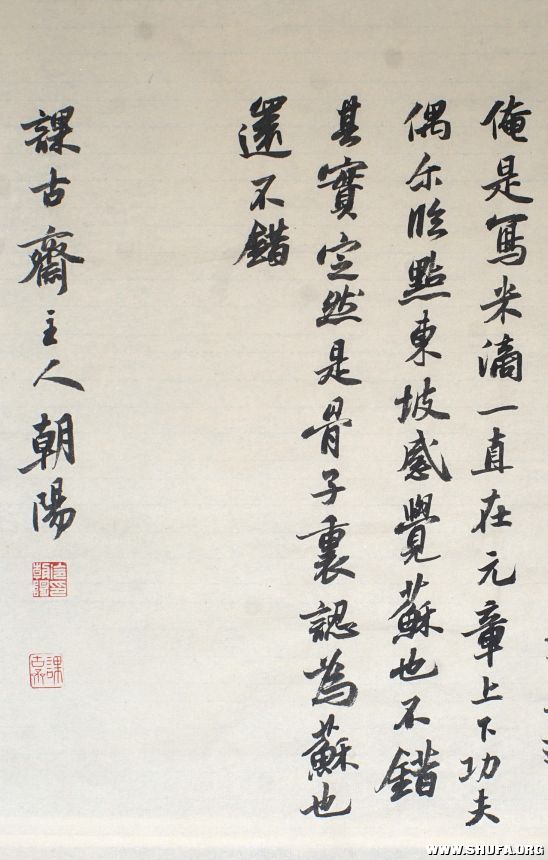 俺是写米滴一直在元章上下功夫
偶尔临點東坡感覺蘇也不錯
其實定然是骨子裏認為蘇也
還不錯
課古齋主人朝陽
WWW.SHUFA.ORG